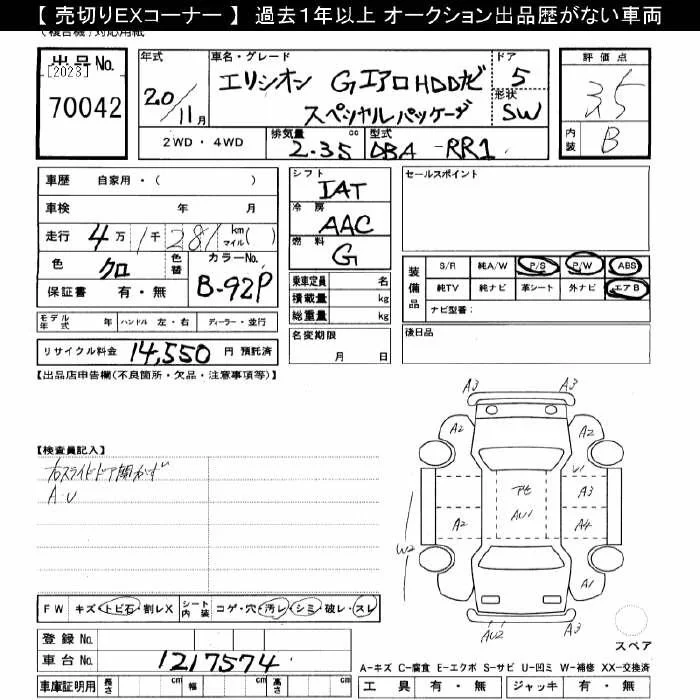 【 売切りEXコーナー 】 過去1年以上 オークション出品歴がない車両
(複合機) 対応用紙
出品 No. [2023] 70042
年式 20/11月
車名・グレード エリシオン GエアロHDDナビ スペシャルパッケージ
ドア 5
形状 SW
評価点 3.5
内装 B
2WD ・ 4WD
排気量 cc 2.35
型式 DBA-RR1
車歴 自家用・( )
車検 年 月
走行 4万 1千 281 km マイル( )
色 クロ 色替 カラーNo. B-92P
保証書 有・無
シフト IAT
冷房 AAC
燃料 G
乗車定員 名
積載量 kg
総重量 kg
名変期限 月 日
セールスポイント
装備品 S/R 純A/W P/S P/W ABS
純TV 純ナビ 革シート 外ナビ エアB
ナビ型番:
後日品
モデル年式 年 ハンドル 左・右 ディーラー・並行
リサイクル料金 14,550 円 預託済
【出品店申告欄(不良箇所・欠品・注意事項等)】
【検査員記入】
右スライドドア開かず
A・U
A3 A3
A2 A2
U1
アセ A3
A2 AU1 A4
W2
A1
AU2 A3
FW キズ・トビ石・割レX シート内装 コゲ・穴・汚レ・シミ・破レ・スレ
スペア
登録 No.
車台 No. 1217574
A−キズ C−腐食 E−エクボ S−サビ U−凹ミ W−補修 XX−交換済
車庫証明用 長さ cm 幅 cm 高さ cm
工具 有・無 ジャッキ 有・無